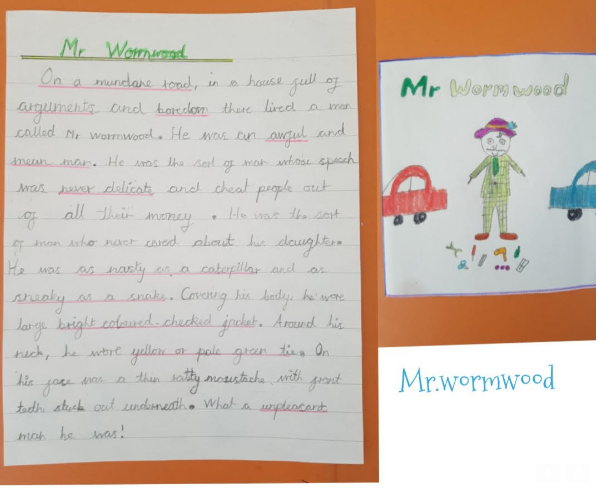 Mr Wormwood
On a mundane road, in a house full of
arguments and boredom there lived a man
called Mr wormwood. He was an awful and
mean man. He was the sort of man whose speech
was never delicate and cheat people out
of all their money. He was the sort
of man who never cared about his daughter.
He was as nasty as a caterpillar and as
sneaky as a snake. Covering his body, he wore
large bright coloured-checked jacket. Around his
neck, he wore yellow or pale green tie. On
his face was a thin ratty moustache with front
teeth stuck out underneath. What a unpleasant
man he was!
Mr Wormwood
Mr.wormwood